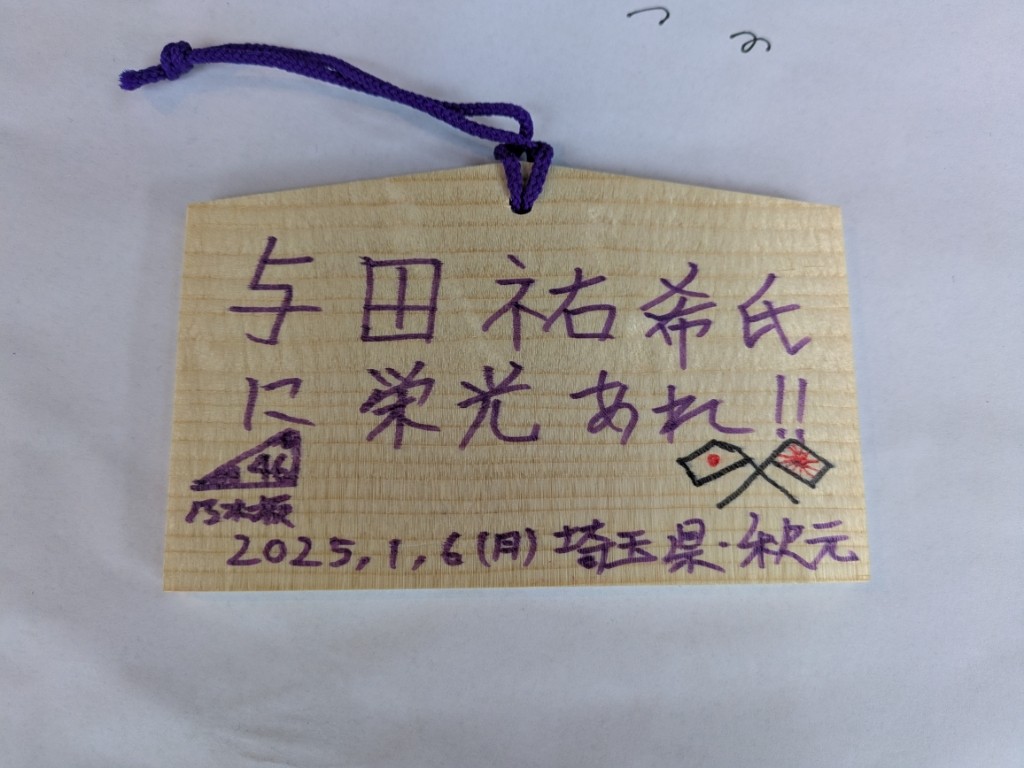 与田祐希氏
に栄光あれ!!
46
乃木坂
2025,1,6(月)埼玉県・秋元